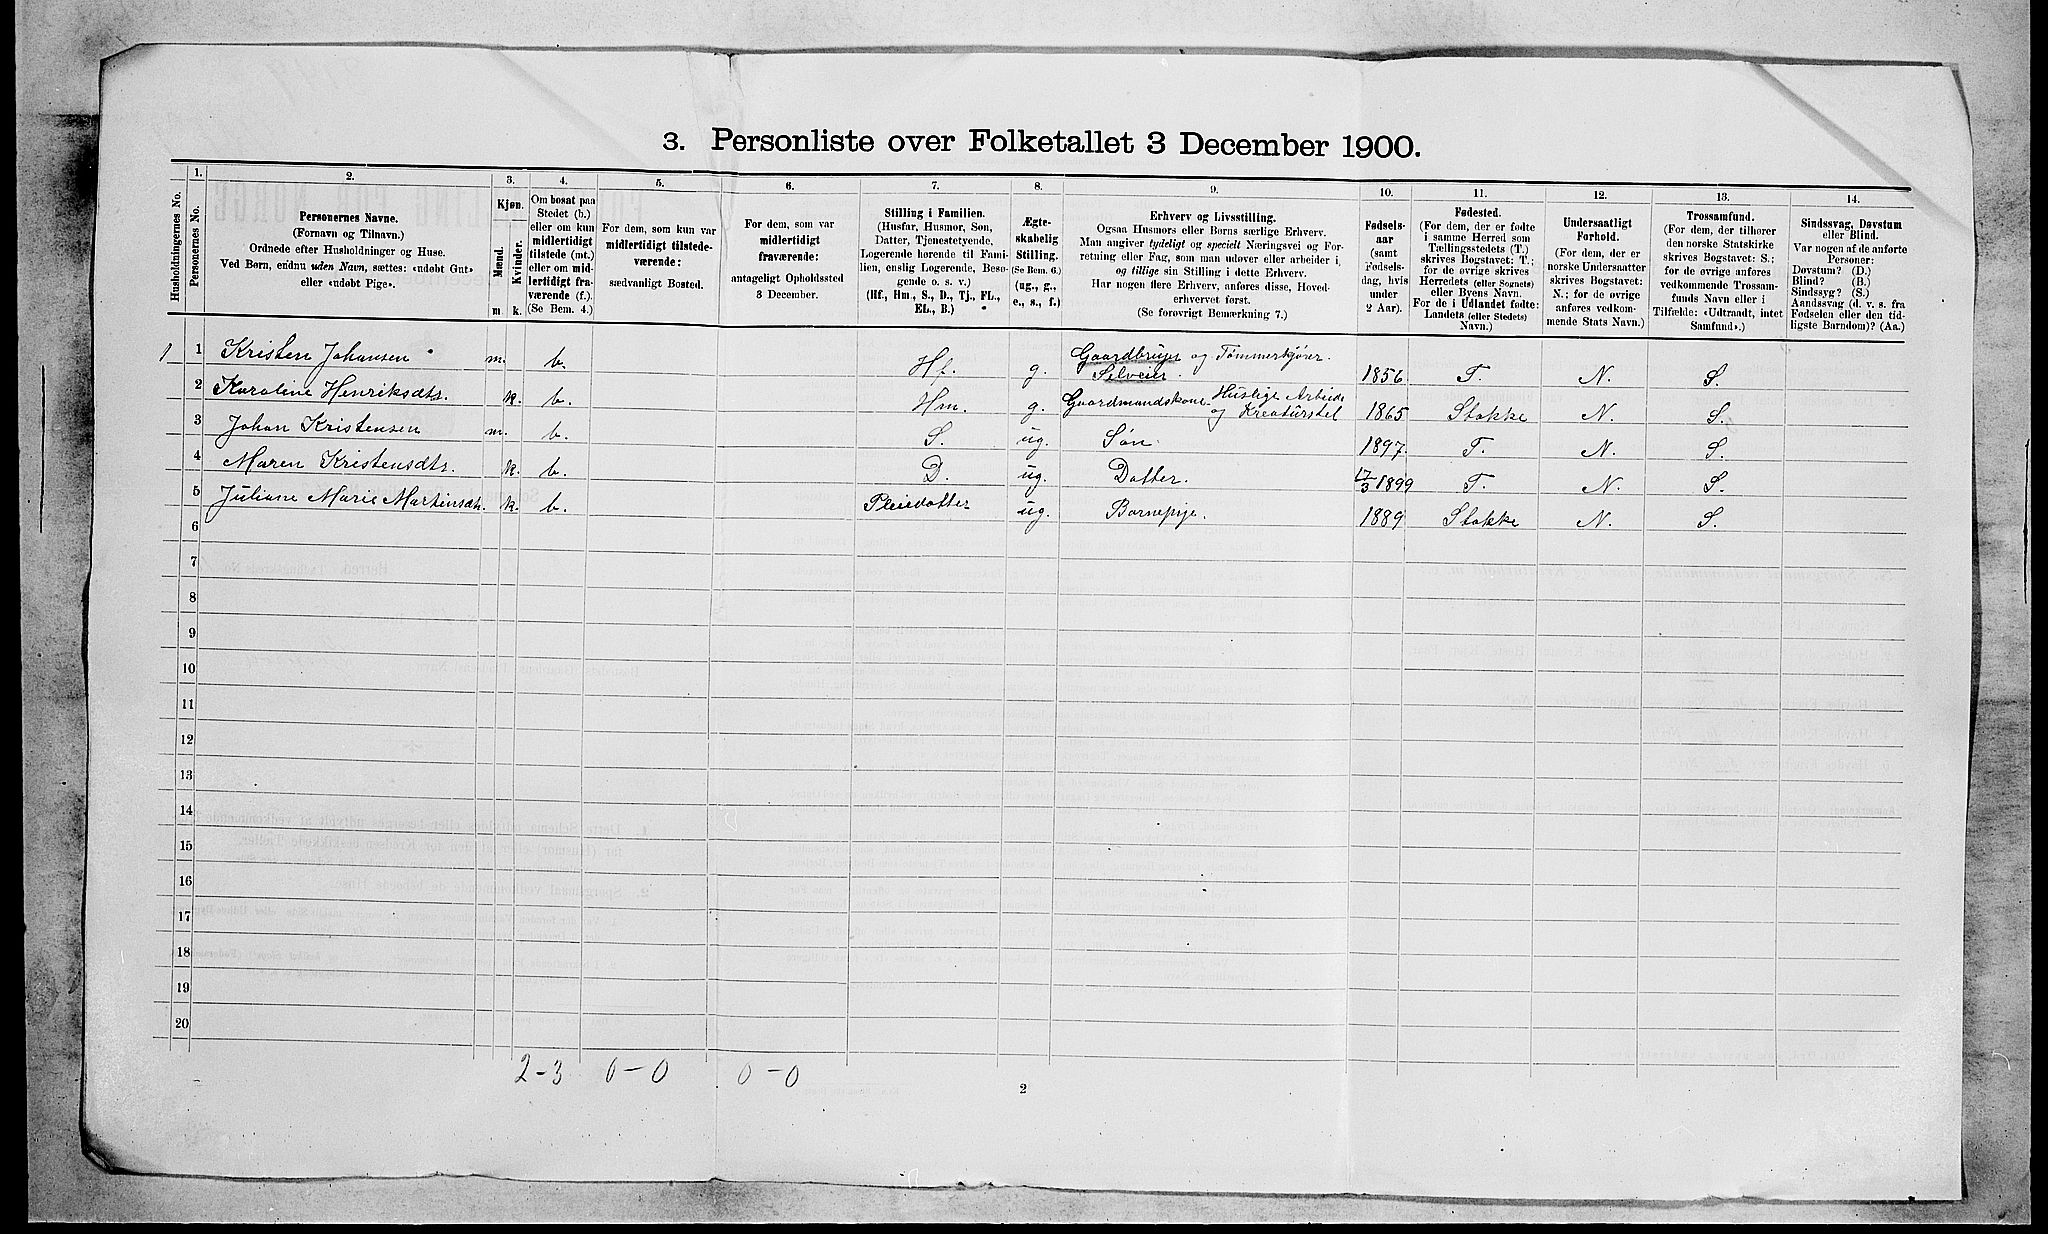 3. Personliste over Folketallet 3 December 1900.
Husholdningernes No.
1. Personernes No.
2.
Personernes Navne.
(Fornavn og Tilnavn.)
Ordnede efter Husholdninger og Huse.
Ved Børn, endnu uden Navn, sættes: «udøbt Gut»
eller «udøbt Pige».
3.
Kjøn.
Mænd. Kvinder.
m. k.
4.
Om bosat paa
Stedet (b.)
eller om kun
midlertidigt
tilstede (mt.)
eller om mid-
lertidigt fra-
værende (f.).
(Se Bem. 4.)
5.
For dem, som kun var
midlertidigt tilstede-
værende:
sædvanligt Bosted.
6.
For dem, som var
midlertidigt
fraværende:
antageligt Opholdssted
3 December.
7.
Stilling i Familien.
(Husfar, Husmor, Søn,
Datter, Tjenestetyende,
Logerende hørende til Fami-
lien, enslig Logerende, Besø-
gende o. s. v.)
(Hf., Hm., S., D., Tj., FL.,
EL., B.)
8.
Ægte-
skabelig
Stilling.
(Se Bem. 6.)
(ug., g.,
e., s., f.)
9.
Erhverv og Livsstilling.
Ogsaa Husmors eller Børns særlige Erhverv.
Man angiver tydeligt og specielt Næringsvei og For-
retning eller Fag, som man udøver eller arbeider i,
og tillige sin Stilling i dette Erhverv.
Har nogen flere Erhverv, anføres disse, Hoved-
erhvervet først.
(Se forøvrigt Bemærkning 7.)
10.
Fødsels-
aar
(samt
Fødsels-
dag, hvis
under
2 Aar).
11.
Fødested.
(For dem, der er fødte
i samme Herred som
Tællingsstedets (T.)
skrives Bogstavet: T.;
for de øvrige skrives
Herredets (eller Sognets)
eller Byens Navn.
For de i Udlandet fødte:
Landets (eller Stedets)
Navn.)
12.
Undersaatligt
Forhold.
(For dem, der er
norske Undersaatter
skrives Bogstavet:
N.; for de øvrige
anføres vedkom-
mende Stats Navn.)
13.
Trossamfund.
(For dem, der tilhører
den norske Statskirke
skrives Bogstavet: S.;
for de øvrige anføres
vedkommende Trossam-
funds Navn eller i
Tilfælde: «Udtraadt, intet
Samfund».)
14.
Sindssvag, Døvstum
eller Blind.
Var nogen af de anførte
Personer:
Døvstum? (D.)
Blind? (B.)
Sindssyg? (S.)
Aandssvag (d. v. s. fra
Fødselen eller den tid-
ligste Barndom)? (Aa.)
1 1 Kristen Johansen m. b. Hf. g. Gaardbruger og Tømmerkjører. Selveier. 1856. T. N. S.
2 Karoline Henriksdtr. k. b. Hm. g. Gaardmandskone Huslige Arbeide og Kreaturstel 1865 Stokke N. S.
3 Johan Kristensen m. b. S. ug. Søn. 1897. T. N. S.
4 Maren Kristensdtr. k. b. D. ug. Datter. 17/3 1899 T. N. S.
5 Juliane Marie Martinsdtr. k. b. Pleiedatter ug. Barnepige. 1889 Stokke N. S.
6
7
8
9
10
11
12
13
14
15
16
17
18
19
20
2-3 0-0 0-0
2